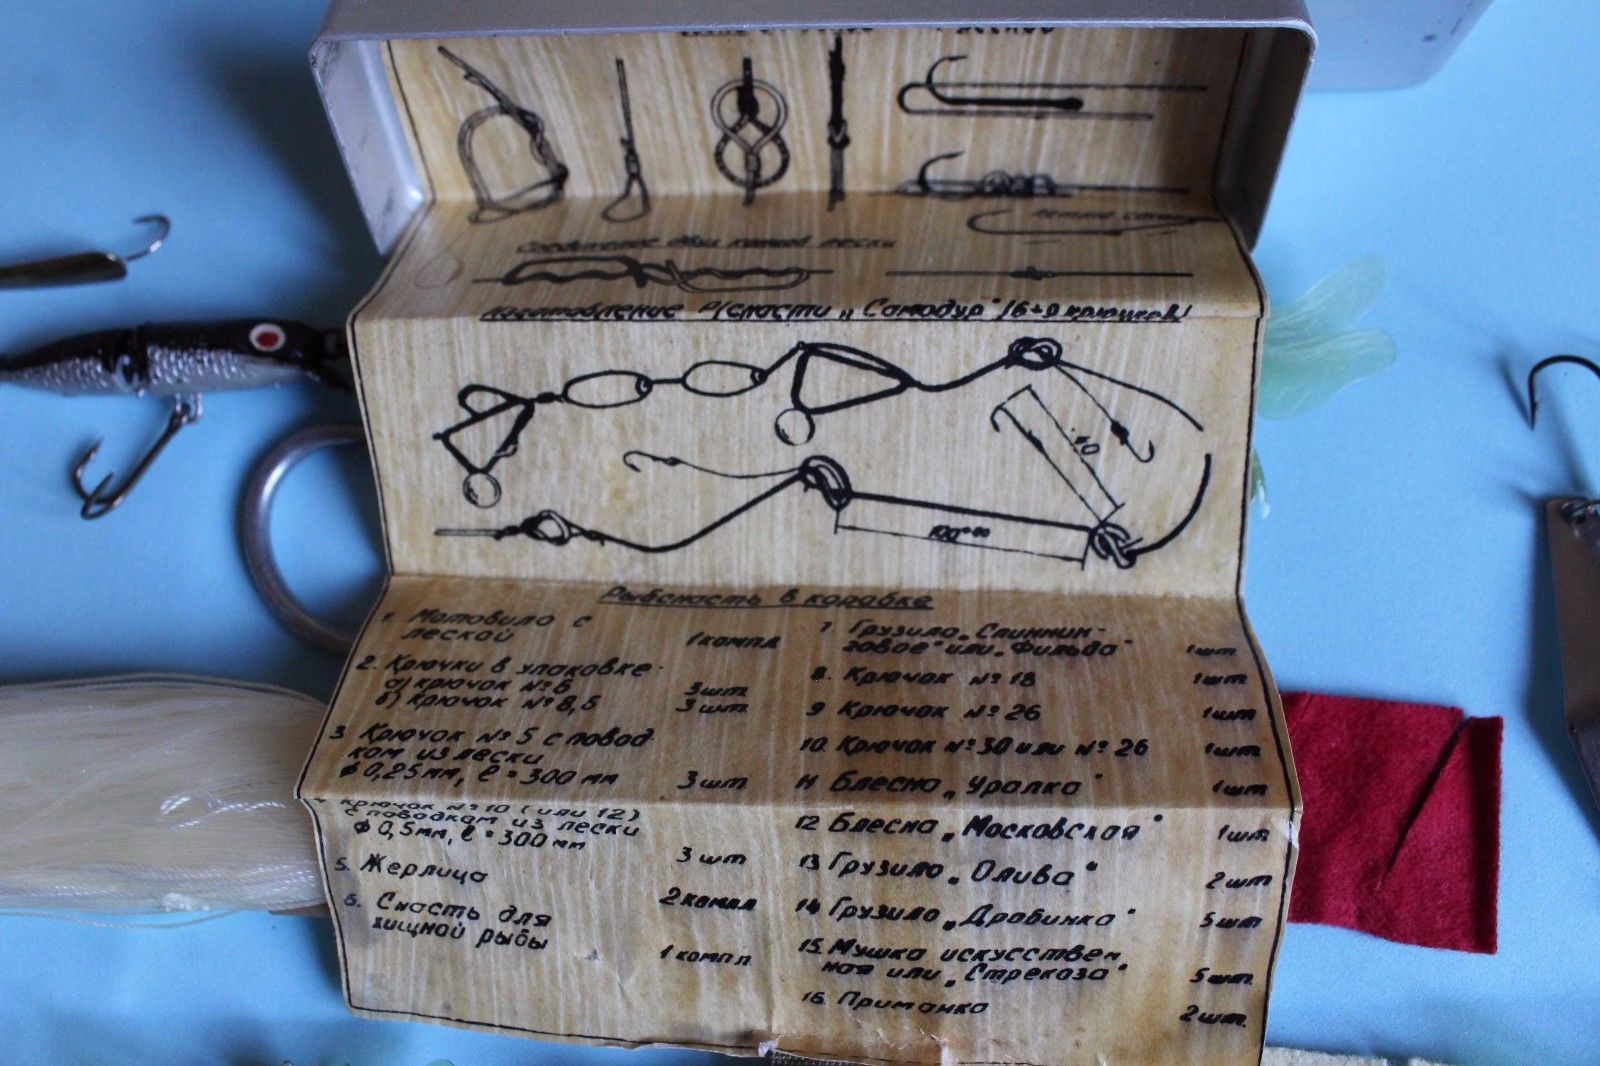 Соединение двух концов лески
Изготовление р/снасти „Самодур"
10
Рыбснасть в коробке
1. Мотовило с
леской 1 компл
2. Крючки в упаковке:
а) крючок № 6 3 шт
б) крючок № 8,5 3 шт
3. Крючок № 5 с повод-
ком из лески
ф 0,25 мм, ℓ = 300 мм 3 шт
крючок № 10 (или 12)
с поводком из лески
ф 0,5 мм, ℓ = 300 мм 3 шт
5. Жерлица 2 компл
6. Снасть для
хищной рыбы 1 компл
7 Грузило „Спиннин-
говое" или „Фильва" 1 шт
8. Крючок № 18 1 шт
9 Крючок № 26 1 шт
10. Крючок № 30 или № 26 1 шт
11 Блесна „Уралка" 1 шт
12 Блесна „Московская" 1 шт
13 Грузило „Олива" 2 шт
14 Грузило „Дробинка" 5 шт
15. Мушка искусствен
ная или „Стрекоза" 5 шт.
16. Приманка 2 шт.